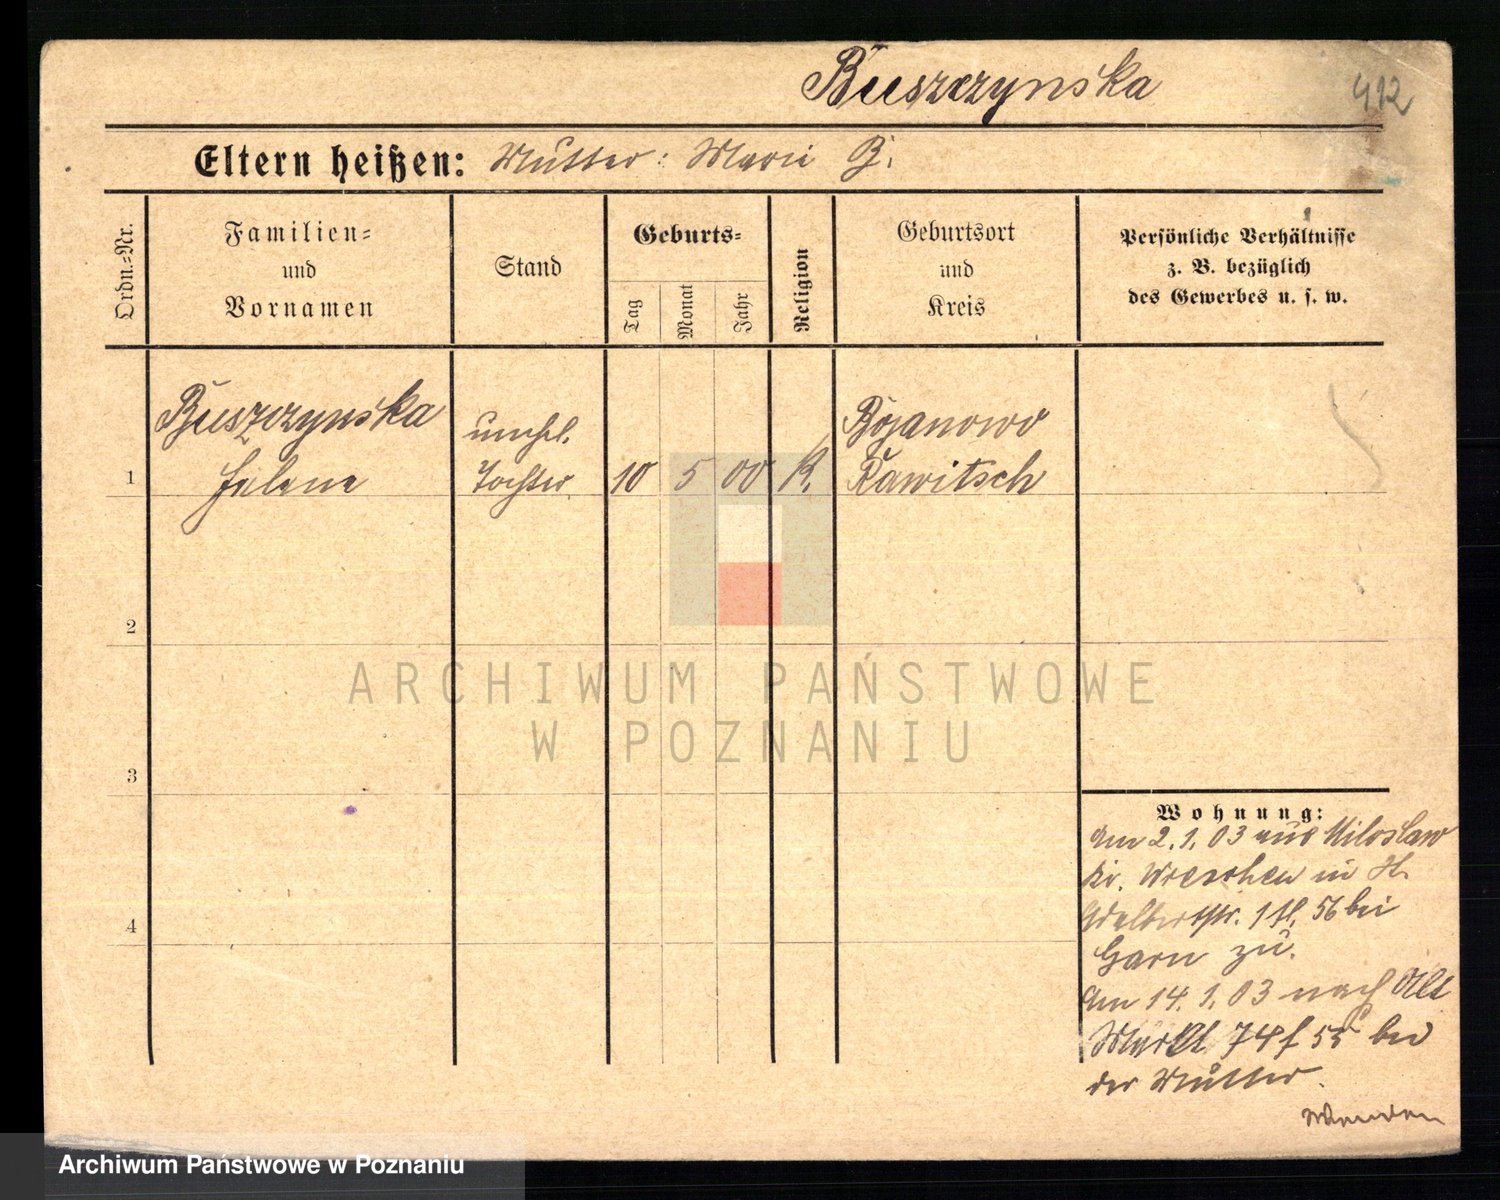 Buszczynska
412
Eltern heißen: Mutter: Marie B.
Ordn.-Nr.
Familien- und Vornamen
Stand
Geburts-
Tag
Monat
Jahr
Religion
Geburtsort und Kreis
Persönliche Verhältnisse
z. B. bezüglich
des Gewerbes u. s. w.
Buszczynska unehl. Bojanowo
1 Helene Tochter 10 5 00 K. Rawitsch
2
ARCHIWUM PAŃSTWOWE
W POZNANIU
3
Wohnung:
Am 2.1.03 aus Miloslaw
Kr. Wreschen in H.
Adelbertstr. 1 fl. 56 bei
4
Garn zu.
Am 14.1.03 nach Alt
Markt 74 f 55 bei
der Mutter.
Wenden
Archiwum Państwowe w Poznaniu